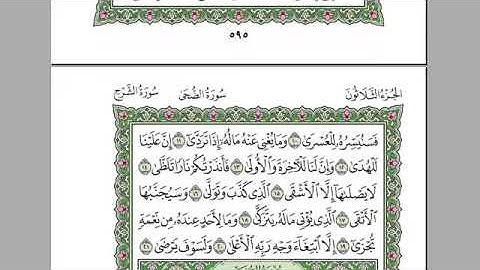 ٥٩٥
الجزء الثلاثون سورة الضحى سورة الشرح
فَسَنُيَسِّرُهُۥ لِلْعُسْرَىٰ ١٠ وَمَا يُغْنِى عَنْهُ مَالُهُۥٓ إِذَا تَرَدَّىٰٓ ١١ إِنَّ عَلَيْنَا
لَلْهُدَىٰ ١٢ وَإِنَّ لَنَا لَلْءَاخِرَةَ وَٱلْأُولَىٰ ١٣ فَأَنذَرْتُكُمْ نَارًا تَلَظَّىٰ ١٤
لَا يَصْلَىٰهَآ إِلَّا ٱلْأَشْقَى ١٥ ٱلَّذِى كَذَّبَ وَتَوَلَّىٰ ١٦ وَسَيُجَنَّبُهَا
ٱلْأَتْقَى ١٧ ٱلَّذِى يُؤْتِى مَالَهُۥ يَتَزَكَّىٰ ١٨ وَمَا لِأَحَدٍ عِندَهُۥ مِن نِّعْمَةٍ
تُجْزَىٰٓ ١٩ إِلَّا ٱبْتِغَآءَ وَجْهِ رَبِّهِ ٱلْأَعْلَىٰ ٢٠ وَلَسَوْفَ يَرْضَىٰ ٢١